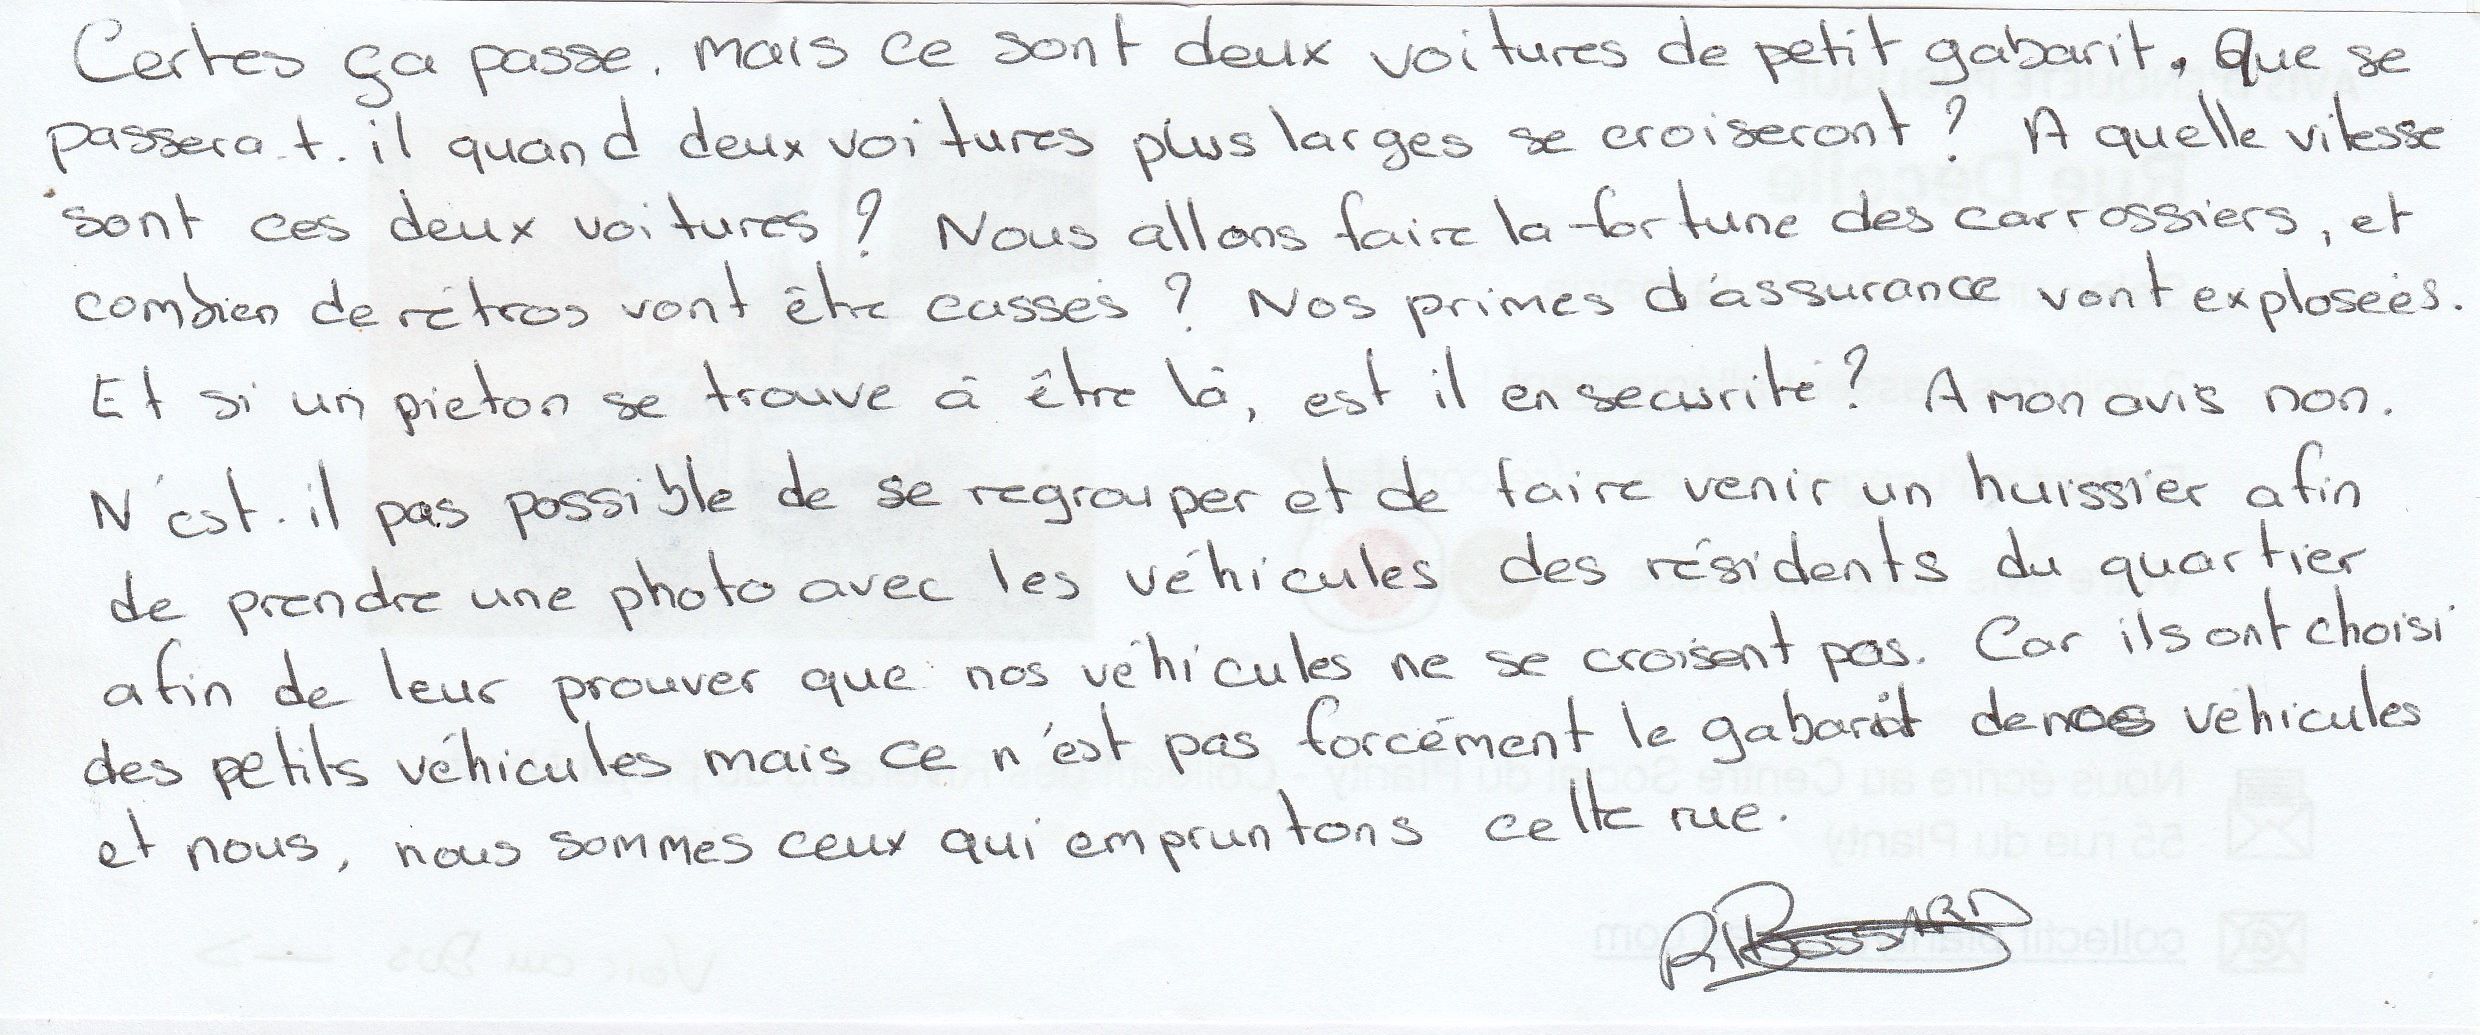 Certes ça passe. Mais ce sont deux voitures de petit gabarit. Que se
passera.t.il quand deux voitures plus larges se croiseront ? A quelle vitesse
sont ces deux voitures ? Nous allons faire la fortune des carrossiers, et
combien de rétros vont être cassés ? Nos primes d'assurance vont explosées.
Et si un pieton se trouve à être là, est il en securité ? A mon avis non.
N'est.il pas possible de se regrouper et de faire venir un huissier afin
de prendre une photo avec les véhicules des résidents du quartier
afin de leur prouver que nos véhicules ne se croisent pas. Car ils ont choisi
des petits véhicules mais ce n'est pas forcément le gabarit de nos véhicules
et nous, nous sommes ceux qui empruntons cette rue.